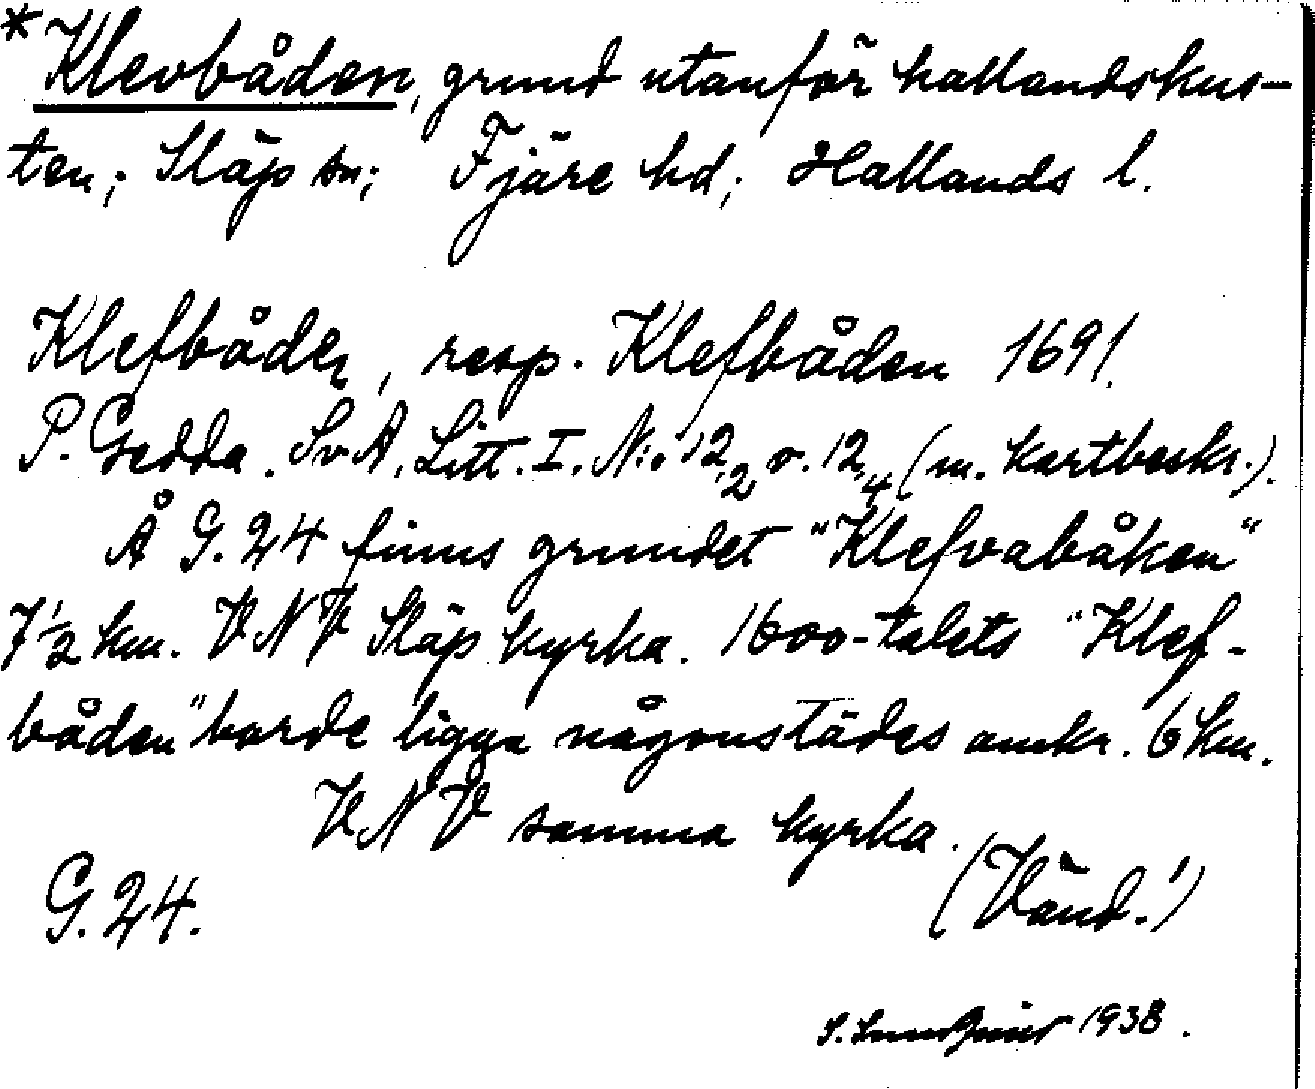 *Klevbåden, grund utanför hallandskus-
ten; Släp sn; Fjäre hd; Hallands l.
Klefbåden, resp. Klefbåden 1691.
P. Gedda. SvA, Litt. I. N:o 12,2 o. 12,4 (m. kartbeskr.).
Å G. 24 finns grundet "Klefvabåken"
7 1/2 km. VNV Släp kyrka. 1600-talets "Klef-
båden" borde ligga någonstädes omkr. 6 km.
VNV samma kyrka.
(Vänd!)
G. 24.
1938.